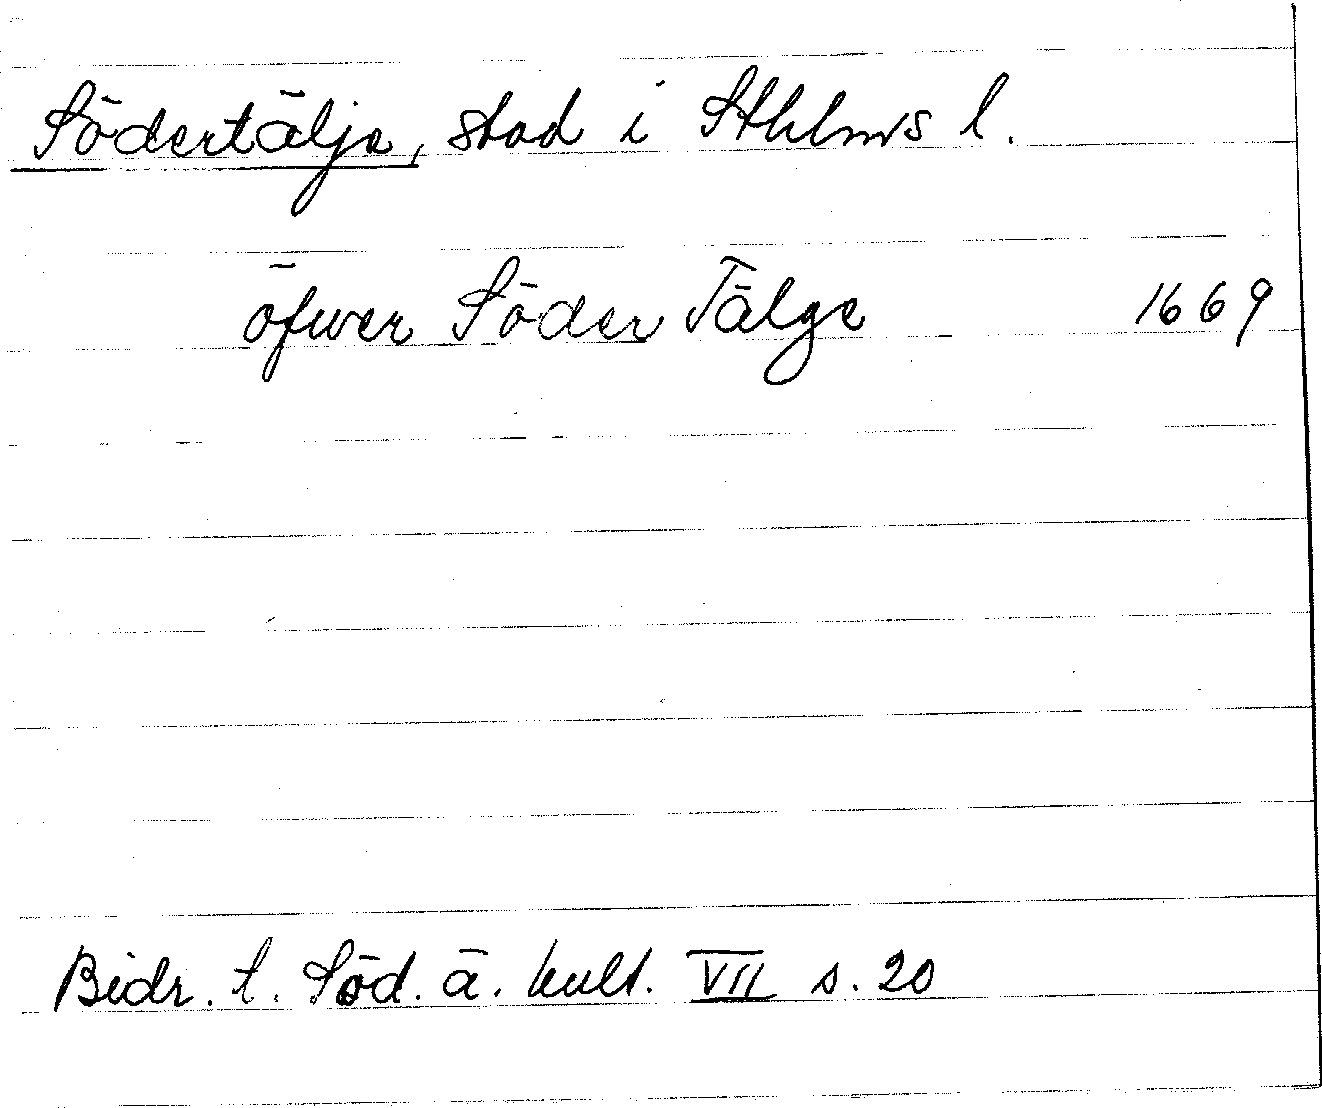 Södertälje, stad i Sthlms l.
öfwer Söder Tälge 1669
Bidr. t. Söd. ä. kult. VII s. 20